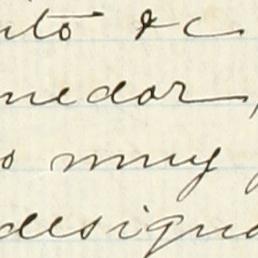 nto &c
nedor,
o muy
designa